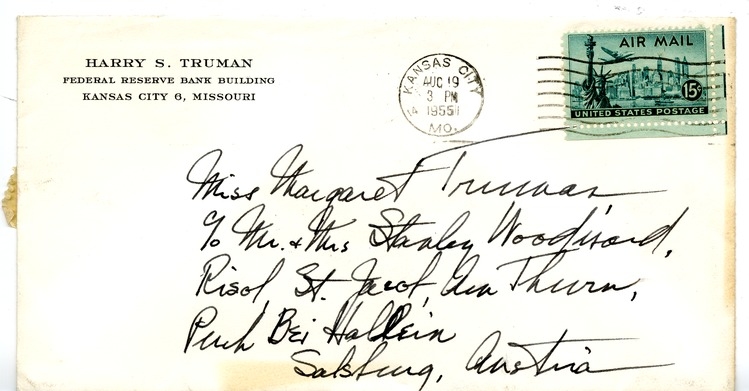 HARRY S. TRUMAN
FEDERAL RESERVE BANK BUILDING
KANSAS CITY 6, MISSOURI
KANSAS CITY
AUG 19
3 PM
1955
MO.
AIR MAIL
15¢
UNITED STATES POSTAGE
Miss Margaret Truman
c/o Mr. & Mrs Stanley Woodward,
St. Jacob, Am Thurn,
Bei Hallein
Salzburg, Austria